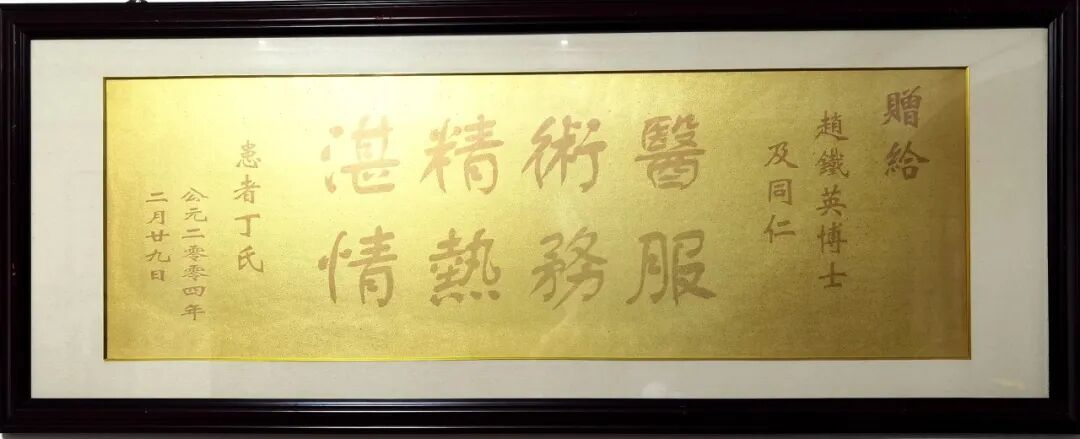 贈給
趙鐵英博士
及同仁
醫術精湛
服務熱情
患者丁氏
公元二零零四年
二月廿九日